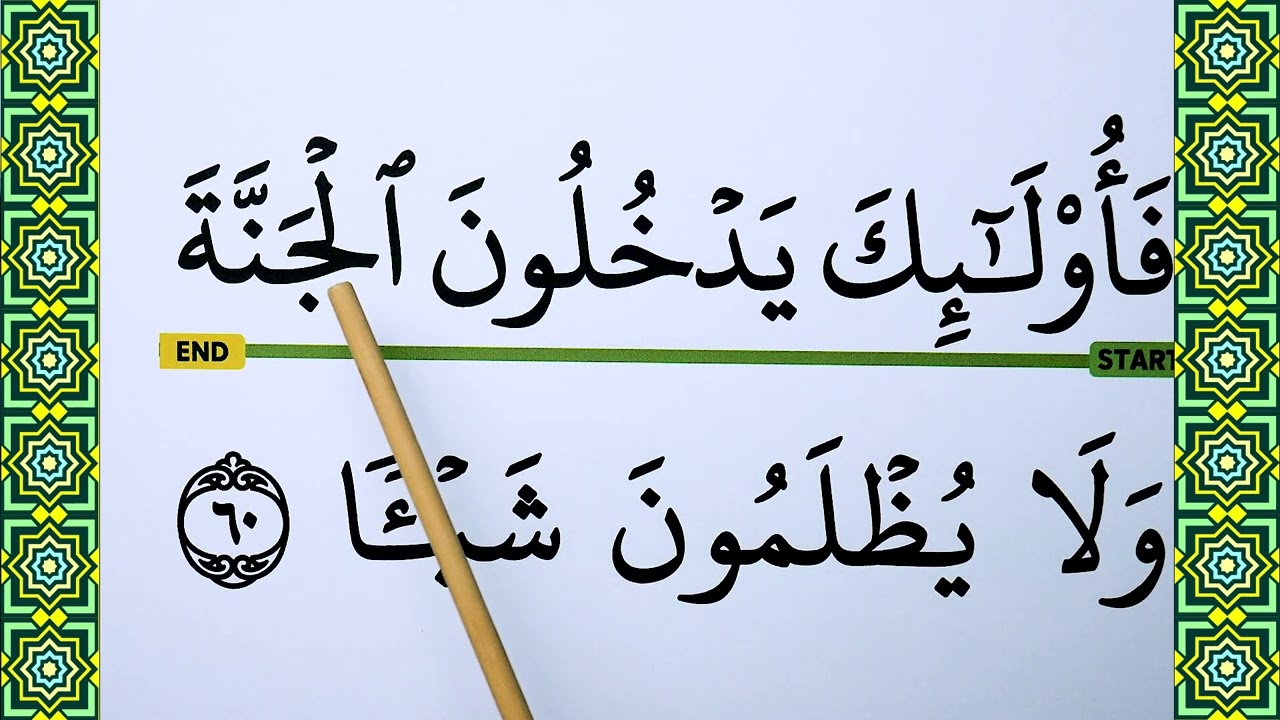 فَأُو۟لَـٰٓئِكَ يَدْخُلُونَ ٱلْجَنَّةَ
END START
وَلَا يُظْلَمُونَ شَيْـًٔا ٦٠